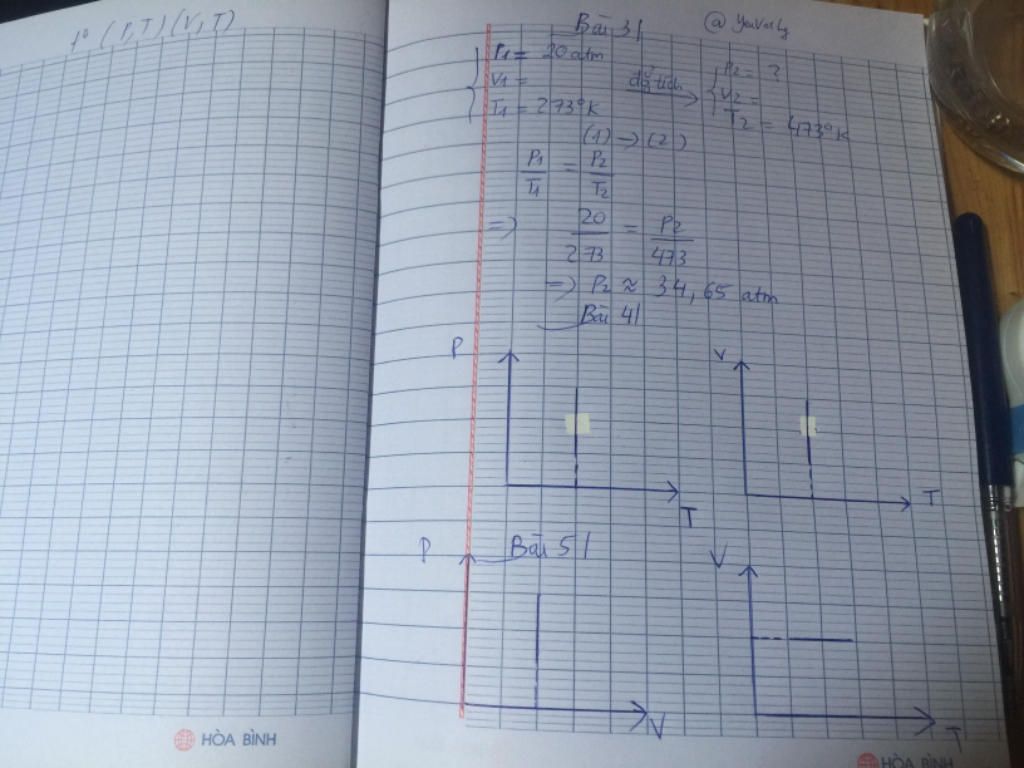 1º (P,T) (V,T)
Bài 3|
P1 = 20 atm
V1 =
T1 = 273°K
đẳng tích
P2 = ?
V2 =
T2 = 473°K
(1) → (2)
P1/T1 = P2/T2
=> 20/273 = P2/473
=> P2 ≈ 34,65 atm
Bài 4|
P T
V T
Bài 5|
P V
V T
HÒA BÌNH
HÒA BÌNH